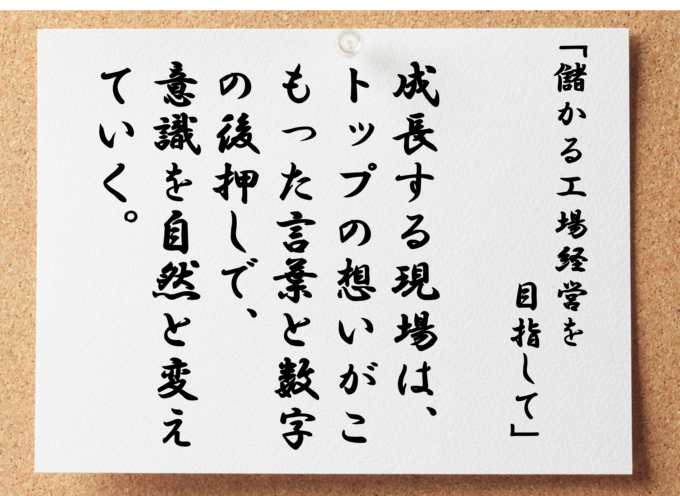 「儲かる工場経営を
目指して」
成長する現場は、
トップの想いがこ
もった言葉と数字
の後押しで、
意識を自然と変え
ていく。